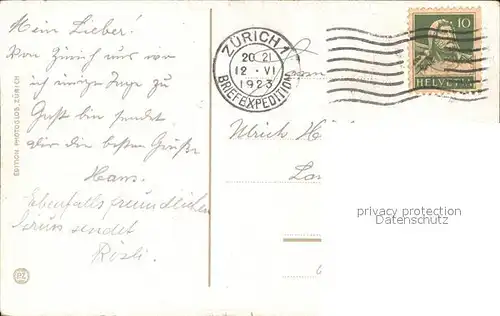 Mein Lieber!
Von Zürich aus wo
ich einige Tage zu
Gast bin sendet
dir die besten Grüße
Hans.
Ebenfalls freundlichen
Gruss sendet
Rösli.
EDITION PHOTOGLOB, ZÜRICH
PZ
ZÜRICH 1
20 21
12 · VI
1923
BRIEFEXPEDITION
10
HELVETIA
Ulrich
privacy protection
Datenschutz